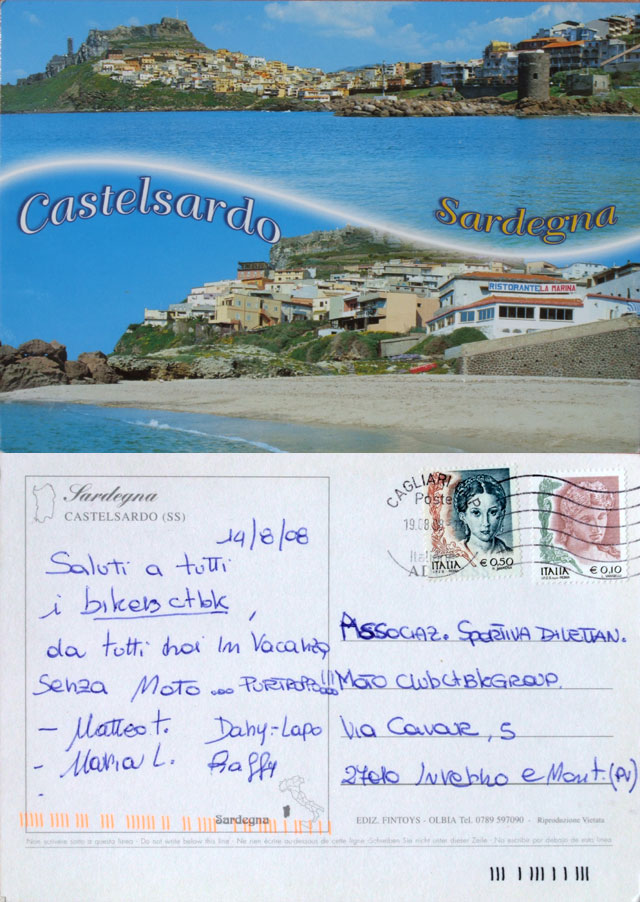 Castelsardo
Sardegna
RISTORANTE LA MARINA
Sardegna
CASTELSARDO (SS)
14/8/08
Saluti a tutti
i bikers ctbk,
da tutti noi in Vacanza
Senza Moto ... PURTROPPO!!!
- Matteo T. Dany-Lapo
- Maria L. Raffy
CAGLIARI
Poste
19.08.08
Italiane
ITALIA € 0,50
ITALIA € 0,10
ASSOCIAZ. SPORTIVA DILETTAN.
MOTO CLUB CTBK GROUP.
Via Cavour, 5
27010 Inverno e Mont. (PV)
Sardegna
EDIZ. FINTOYS - OLBIA Tel. 0789 597090 - Riproduzione Vietata
Non scrivere sotto a questa linea - Do not write below this line - Ne rien écrire au-dessous de cette ligne - Schreiben Sie nicht unter dieser Zeile - No escribir por debrajo de esta línea